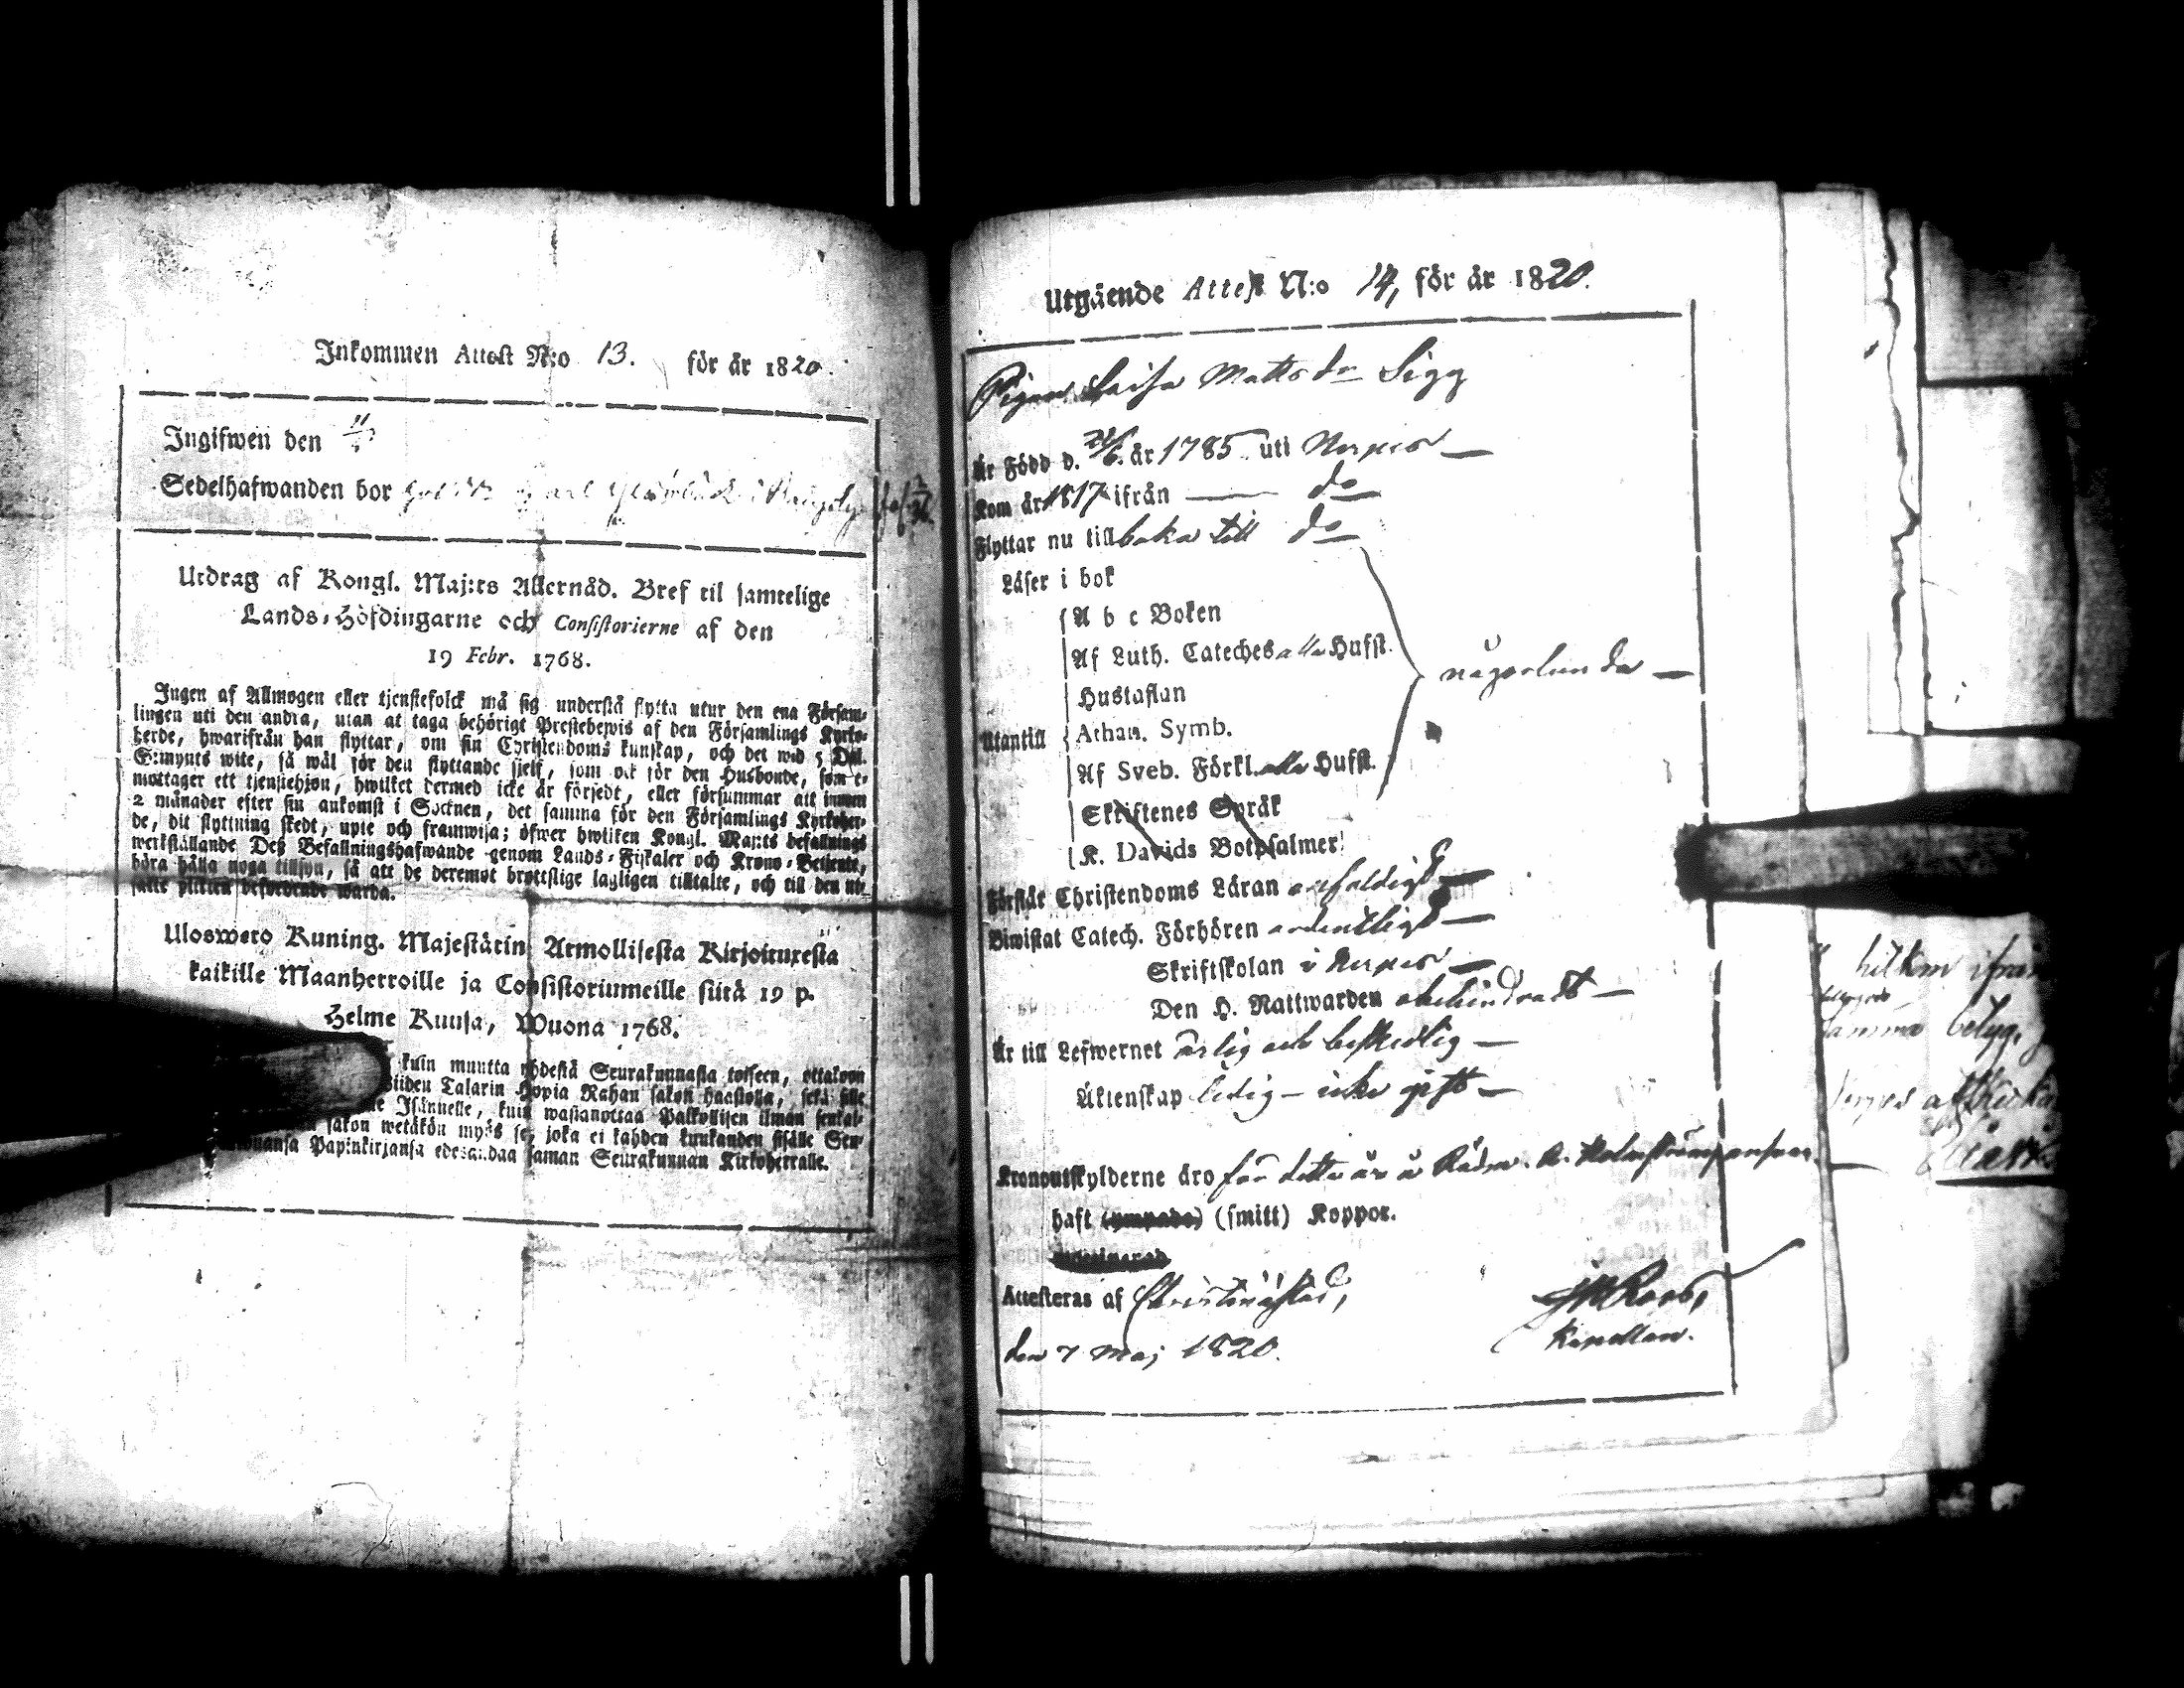 Inkommen Attest N:o 13. för år 1820.
Ingifwen den
Sedelhafwanden bor
Utdrag af Kongl. Maj:ts Allernåd. Bref til samtelige
Lands-Höfdingarne och Consistorierne af den
19 Febr. 1768.
Ingen af Allmogen eller tjenstefolck må sig understå flytta utur den ena Försam-
lingen uti den andra, utan at taga behörigt Prestebewis af den Församlings Kyrko-
herde, hwarifrån han flyttar, om sin Christendoms kunskap, och det wid 5 Dal.
S:mynts wite, så wäl för den flyttande sjelf, som ock för den Husbonde, som e-
mottager ett tjenstehjon, hwilket dermed icke är försedt, eller försummar att innom
2 månader efter sin ankomst i Socknen, det samma för den Församlings Kyrkoher-
de, dit flyttning skedt, upte och framwisa; öfwer hwilken Kongl. Maj:ts befallnings
werkställande Deß Befallningshafwande genom Lands-Fiskaler och Krono-Betjente,
böra hålla noga tillsyn, så att de deremot brottslige lagligen tilltalte, och till den ut-
satte plikten befordrende warda.
Ulosweto Kuning. Majestätin Armollisesta Kirjoituxesta
kaikille Maanherroille ja Consistoriumeille siitä 19 p.
Helme Kuusa, Wuona 1768.
kuin muutta yhdestä Seurakunnasta toiseen, ottakoon
Talarin Hopia Rahan sakon haastolla, sekä sille
Isännelle, kuin wastanottaa Palkollisen ilman senkal-
sakon wetäkön myös se, joka ei kahden kuukauden sisälle Seu-
Papinkirjansa edesandaa saman Seurakunnan Kirkoherralle.
Utgående Attest N:o 14, för år 1820.
Pigan Caisa Mattsdr Sigg
Är Född d. år 1785 uti Nerpes
Kom år 1817 ifrån do
Flyttar nu tillbaka till do
Läser i bok
A b c Boken
Af Luth. Cateches alla Hufst.
Hustaflan
någorlunda
Utantill Athan. Symb.
Af Sveb. Förkl. alla Hufst.
Skriftenes Språk
K. Davids Botpsalmer
Förstår Christendoms Läran enfaldigt
Biwistat Catech. Förhören ordentligt
Skriftskolan i Nerpes
Den H. Nattwarden obehindradt
Är till Lefwernet ärlig och beskedlig
Äktenskap ledig - icke gift
Kronoutskylderne äro för detta år å Rådm.
haft (ympade) (smitt) Koppor.
Attesteras af Christinæstad,
den 7 Maj 1820.
Kapellan.